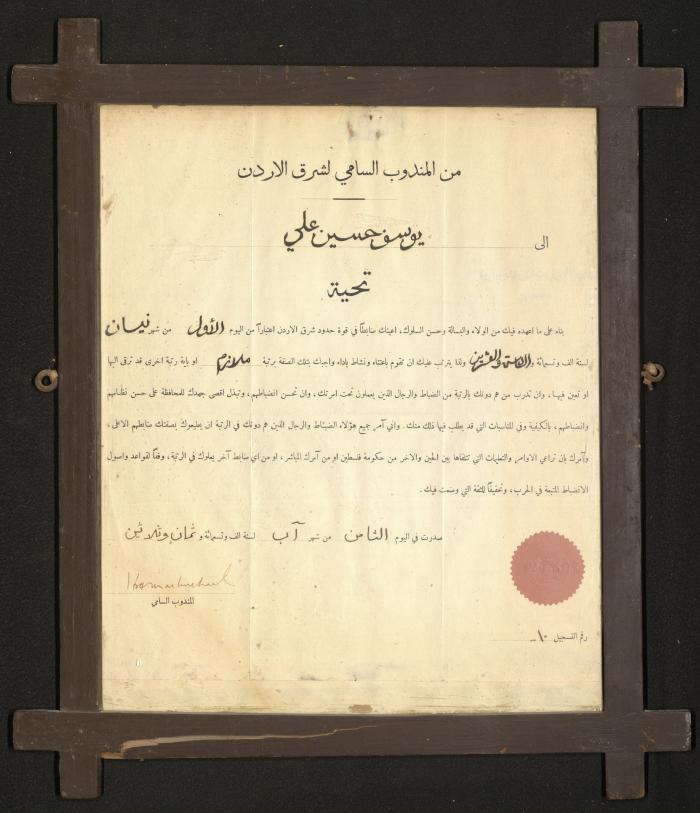 من المندوب السامي لشرق الاردن
الى يوسف حسين علي
تحية
بناء على ما اعهده فيك من الولاء والبسالة وحسن السلوك، اعينك ضابطاً في قوة حدود شرق الاردن اعتباراً من اليوم الأول من شهر نيسان
لسنة الف وتسعمائة و ولذا يترتب عليك ان تقوم باعتناء ونشاط باداء واجبك بتلك الصفة برتبة ملازم او باية رتبة اخرى قد ترقى اليها
او تعين فيها، وان تدرب من هم دونك بالرتبة من الضباط والرجال الذين يعملون تحت امرتك، وان تحسن انضباطهم، وتبذل اقصى جهدك للمحافظة على حسن نظامهم
وانضباطهم، بالكيفية وفي المناسبات التي قد يطلب فيها ذلك منك. واني آمر جميع هؤلاء الضباط والرجال الذين هم دونك في الرتبة ان يطيعوك بصفتك ضابطهم الاعلى،
وآمرك بان تراعي الاوامر والتعليمات التي تتلقاها بين الحين والاخر من حكومة فلسطين او من آمرك المباشر، او من اي ضابط آخر يعلوك في الرتبة، وفقاً لقواعد واصول
الانضباط المتبعة في الحرب، وتحقيقاً للثقة التي وضعت فيك.
صدرت في اليوم الثامن من شهر آب لسنة الف وتسعمائة و ثمان وثلاثين
المندوب السامي
رقم التسجيل ١٠